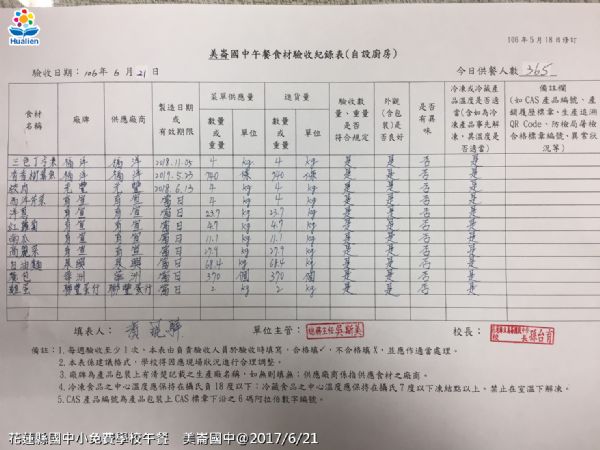 Hualien
106年5月18日修訂
美崙國中午餐食材驗收紀錄表(自設廚房)
驗收日期：106年6月21日 今日供餐人數365
食材名稱 廠牌 供應廠商 製造日期或有效期限 菜單供應量 進貨量 驗收數量、重量是否符合規定 外觀(含包裝)是否良好 是否有異味 冷凍或冷藏產品溫度是否適當(含如為冷凍產品事先解凍，其溫度是否適當) 備註欄(如CAS產品編號、產銷履歷標章、生產追溯QR Code、防檢局署檢合格標章編號、異常狀況等)
數量或重量 單位 數量或重量 單位
2018.11.05 4 kg 4 kg 是 是 否 是
740 740 是 是 否 是
光豐 光豐 2018.6.13 4 kg 4 kg 是 是 否 是
西洋芹菜 育宜 育宜 當日 4 kg 4 kg 是 是 否 是
洋蔥 育宜 育宜 當日 23.7 kg 23.7 kg 是 是 否 是
紅蘿蔔 育宜 育宜 當日 4.9 kg 4.9 kg 是 是 否 是
南瓜 育宜 育宜 當日 11.1 kg 11.1 kg 是 是 否 是
高麗菜 育宜 育宜 當日 27.9 kg 27.9 kg 是 是 否 是
白油麵 當日 68.4 kg 68.4 kg 是 是 否 是
當日 370 個 370 個 是 是 否 是
雞蛋 聯豐蛋行 聯豐蛋行 當日 2 kg 2 kg 是 是 否 是
填表人： 單位主管： 校長：
備註：1.每週驗收至少1次，本表由負責驗收人員於驗收時填寫，合格填✓，不合格填X，並應作適當處理。
2.本表係建議格式，學校得因應現場狀況進行合理調整。
3.廠牌為產品包裝上有清楚記載之生產廠名稱，如無則填無；供應廠商係指供應食材之廠商。
4.冷凍食品之中心溫度應保持在攝氏負18度以下；冷藏食品之中心溫度應保持在攝氏7度以下凍結點以上。禁止在室溫下解凍。
5.CAS產品編號為產品包裝上CAS標章下沿之6碼阿拉伯數字編號。
花蓮縣國中小免費學校午餐 美崙國中@2017/6/21